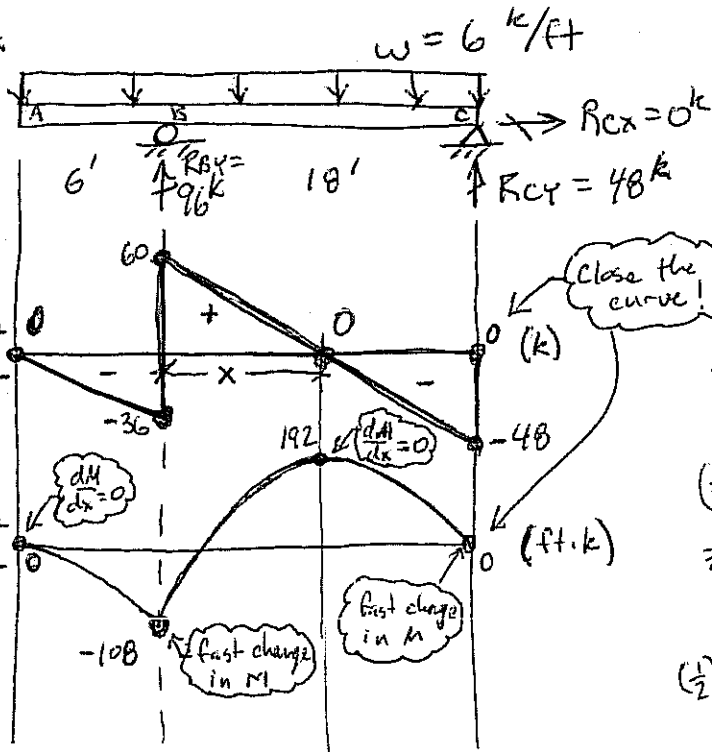 w = 6 k/ft
A
B
C
RCX = 0k
6'
RBY =
96k
18'
RCY = 48k
60
+
0
0
0
(k)
Close the
curve!
-
x
-
-36
-48
192
dM/dx = 0
dM/dx = 0
0
0
(ft.k)
-108
fast change
in M
fast change
in M
(½)